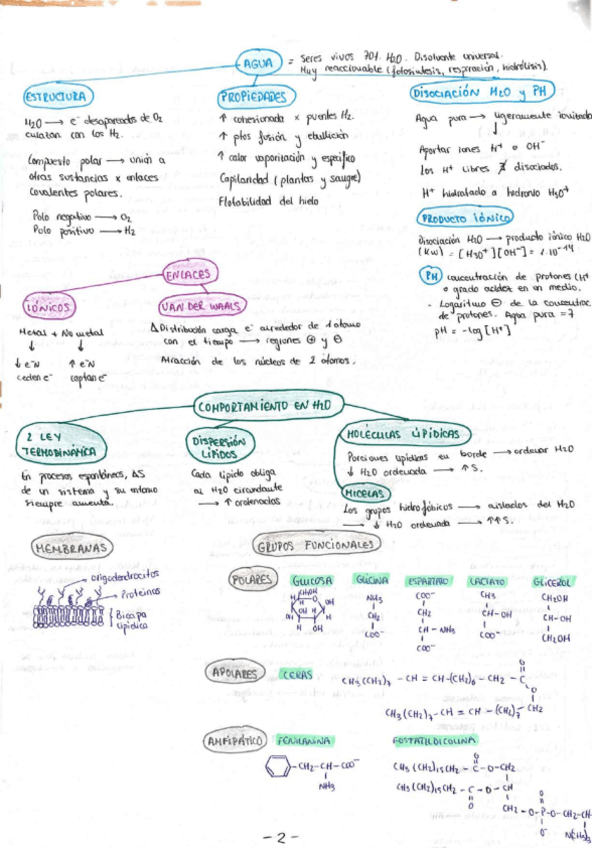 AGUA = Seres vivos 70%. H2O. Disolvente universal.
Muy reaccionable (fotosíntesis, respiración, hidrólisis).
ESTRUCTURA
H2O → e⁻ desapareados de O2
con los H2.
Compuesto polar → unión a
otras sustancias x enlaces
covalentes polares.
Polo negativo → O2
Polo positivo → H2
PROPIEDADES
↑ cohesionada x puentes H2.
↑ ptos fusión y ebullición
↑ calor vaporización y específico
Capilaridad (plantas y sangre)
Flotabilidad del hielo
DISOCIACIÓN H2O y PH
Agua pura → ligeramente ionizada
↓
Aportar iones H⁺ o OH⁻
los H⁺ libres ∄ disociados.
H⁺ hidratado a hidronio H3O⁺
PRODUCTO IÓNICO
Disociación H2O → producto iónico H2O
(Kw) = [H3O⁺][OH⁻] = 1·10⁻¹⁴
PH concentración de protones (H⁺
o grado acidez en un medio.
- Logaritmo ⊖ de la concentrac
de protones. Agua pura = 7
pH = -log [H⁺]
ENLACES
IÓNICOS
Metal + No metal
↓ ↓
↓ e⁻N ↑ e⁻N
ceden e⁻ captan e⁻
VAN DER WAALS
Δ Distribución carga e⁻ alrededor de 1 átomo
con el tiempo → regiones ⊕ y ⊖
Atracción de los núcleos de 2 átomos.
COMPORTAMIENTO EN H2O
2 LEY
TERMODINÁMICA
En procesos espontáneos, ΔS
de un sistema y su entorno
siempre aumenta.
DISPERSIÓN
LÍPIDOS
Cada lípido obliga
al H2O circundante
→ ↑ ordenarlas
MOLÉCULAS LIPÍDICAS
Porciones lipídicas en borde → ordenar H2O
↓ H2O ordenada → ↑ S.
MICELAS
Los grupos hidrofóbicos → aislados del H2O
→ ↓ H2O ordenada → ↑↑ S.
MEMBRANAS
oligodendrocitos
Proteínas
Bicapa
lipídica
GRUPOS FUNCIONALES
POLARES GLUCOSA GLICINA ESPARTATO LACTATO GLICEROL
CH2OH NH3 COO⁻ CH3 CH2OH
CH2 CH2 CH-OH CH-OH
COO⁻ CH-NH3 COO⁻ CH2OH
COO⁻
APOLARES CERAS
CH3(CH2)7 - CH = CH-(CH2)6 - CH2 - C
O
O
CH3(CH2)7-CH = CH - (CH2)7 - CH2
ANFIPÁTICO FENILANINA FOSTATILDICOLINA
CH2-CH-COO⁻
NH3
O
CH3(CH2)15CH2 - C-O-CH2
CH3(CH2)15CH2 - C-O-CH
O
O
CH2-O-P-O-CH2-CH
O⁻
- 2 -